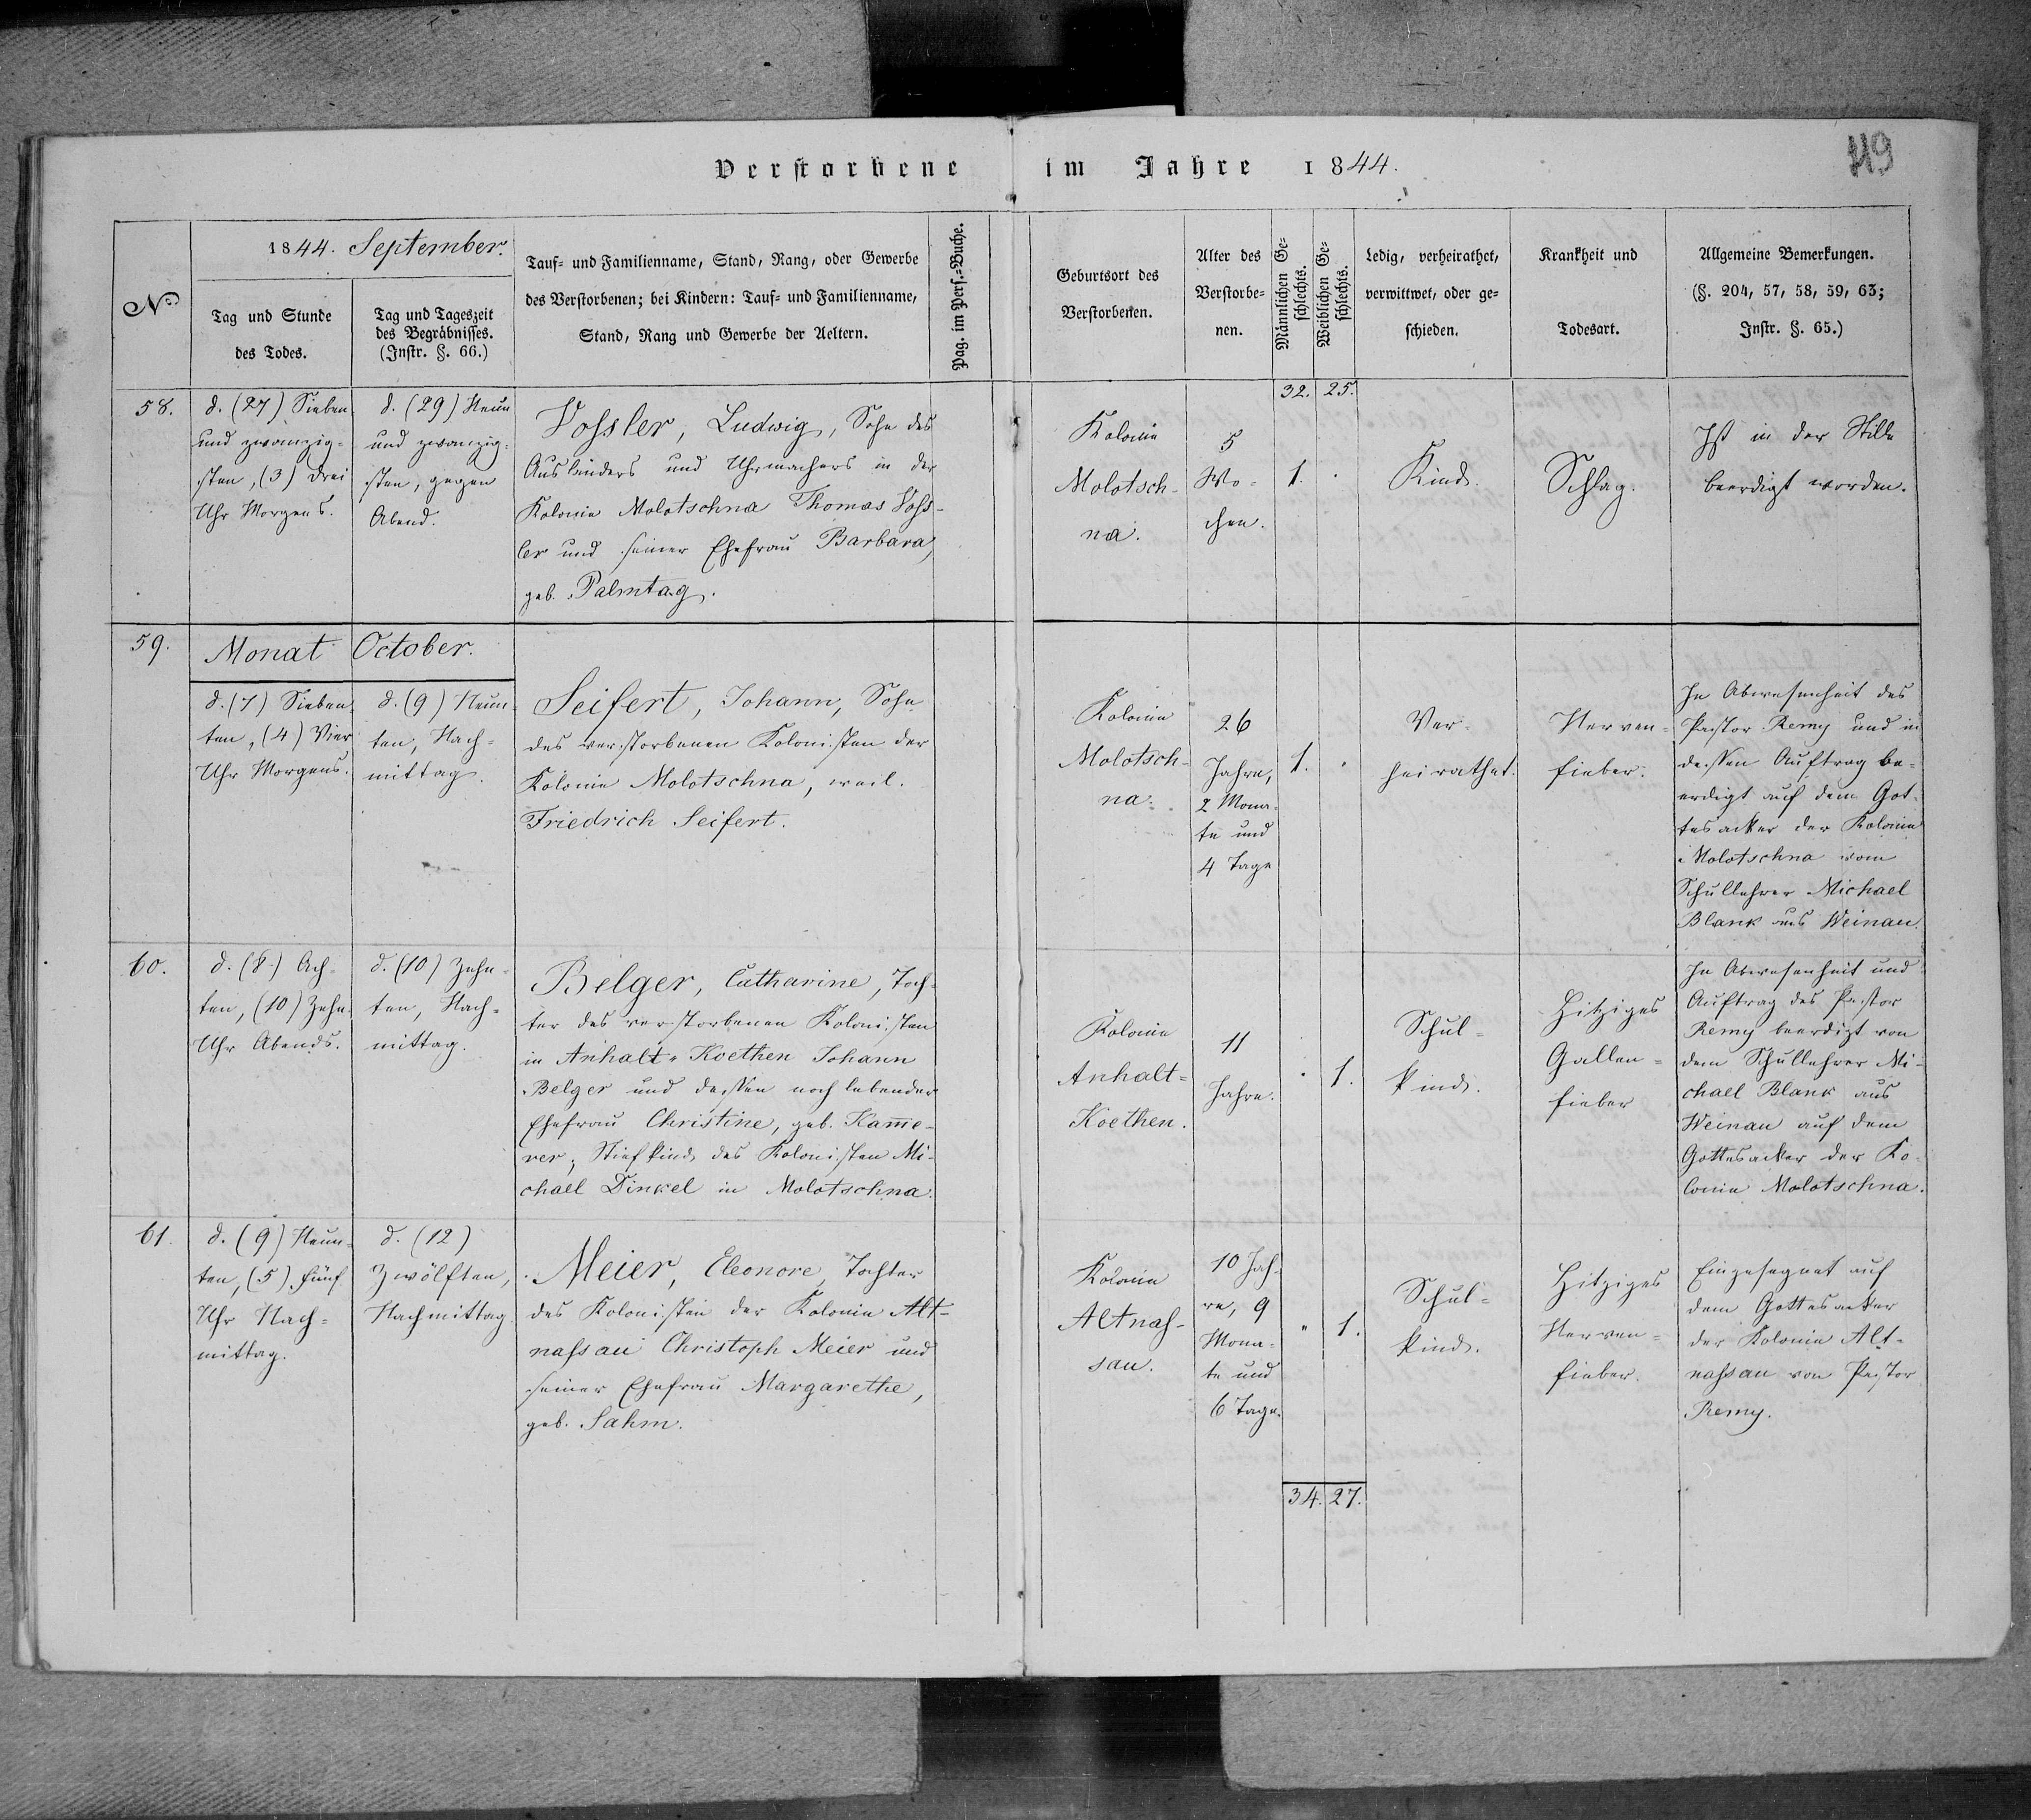 Verstorbene im Jahre 1844.
49
N°
1844. September.
Tag und Stunde
des Todes.
Tag und Tageszeit
des Begräbnisses.
(Instr. §. 66.)
Tauf- und Familienname, Stand, Rang, oder Gewerbe
des Verstorbenen; bei Kindern: Tauf- und Familienname,
Stand, Rang und Gewerbe der Aeltern.
Pag. im Pers.-Buche.
Geburtsort des
Verstorbenen.
Alter des
Verstorbe-
nen.
Männlichen Ge-
schlechts.
Weiblichen Ge-
schlechts.
Ledig, verheirathet,
verwittwet, oder ge-
schieden.
Krankheit und
Todesart.
Allgemeine Bemerkungen.
(§. 204, 57, 58, 59, 63;
Instr. §. 65.)
32. 25.
58.
d. (27) Sieben
und zwanzig-
sten, (3) drei
Uhr Morgens.
d. (29) Neun
und zwanzig-
sten, gegen
Abend.
Vossler, Ludwig, Sohn des
Ausländers und Uhrmachers in der
Kolonie Molotschna Thomas Voss-
ler und seiner Ehefrau Barbara,
geb. Palmtag.
Kolonie
Molotsch-
na.
5
Wo-
chen.
1.
Kind.
Schlag.
Ist in der Stille
beerdigt worden.
59.
Monat October.
d. (7) Sieben-
ten, (4) Vier
Uhr Morgens.
d. (9) Neun-
ten, Nach-
mittag.
Seifert, Johann, Sohn
des verstorbenen Kolonisten der
Kolonie Molotschna, weil.
Friedrich Seifert.
Kolonie
Molotsch-
na.
26
Jahre,
2 Mona-
te und
4 Tage
1.
Ver-
heirathet.
Nerven-
fieber.
In Abwesenheit des
Pastor Remy und in
dessen Auftrag be-
erdigt auf dem Got-
tesacker der Kolonie
Molotschna vom
Schullehrer Michael
Blank aus Weinau.
60.
d. (8.) Ach-
ten, (10) Zehn
Uhr Abends.
d. (10) Zehn-
ten, Nach-
mittag.
Belger, Catharine, Toch-
ter des verstorbenen Kolonisten
in Anhalt-Koethen Johann
Belger und dessen noch lebender
Ehefrau Christine, geb. Kam̄e-
rer; Stiefkind des Kolonisten Mi-
chael Dinkel in Molotschna.
Kolonie
Anhalt-
Koethen.
11
Jahre.
1.
Schul-
kind.
Hitziges
Gallen-
fieber
In Abwesenheit und
Auftrag des Pastor
Remy beerdigt von
dem Schullehrer Mi-
chael Blank aus
Weinau auf dem
Gottesacker der Ko-
lonie Molotschna.
61.
d. (9) Neun-
ten, (5) Fünf
Uhr Nach-
mittag.
d. (12)
Zwölften,
Nachmittag.
Meier, Eleonore, Tochter
des Kolonisten der Kolonie Alt-
nassau Christoph Meier und
seiner Ehefrau Margarethe,
geb. Sahm.
Kolonie
Altnas-
sau.
10 Jah-
re, 9
Mona-
te und
6 Tage.
1.
Schul-
kind.
Hitziges
Nerven-
fieber.
Eingesegnet auf
dem Gottesacker
der Kolonie Alt-
nassau von Pastor
Remy.
34. 27.